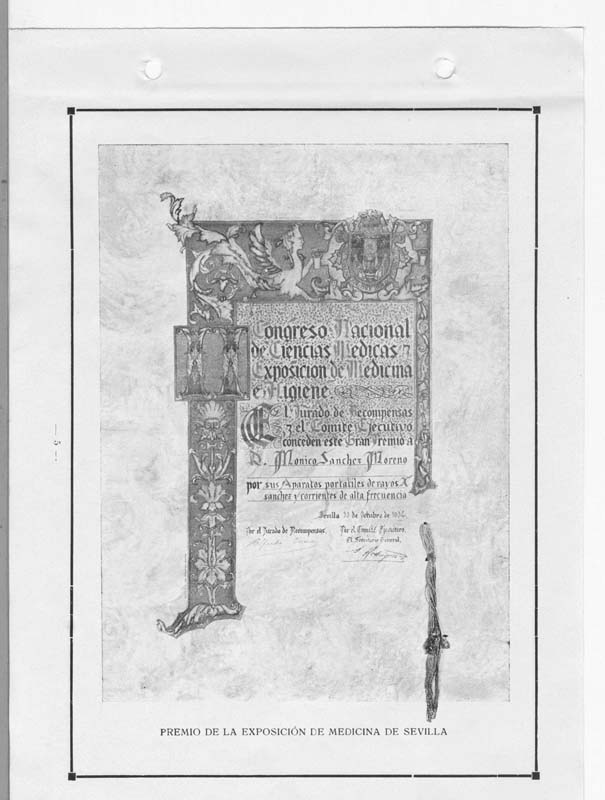 Congreso Nacional
de Ciencias Medicas y
Exposicion de Medicina
e Higiene.
El Jurado de Recompensas
y el Comite Ejecutivo
conceden este Gran Premio a
D. Monico Sanchez Moreno
por sus Aparatos portatiles de rayos X
sanchez y corrientes de alta frecuencia
Sevilla de Octubre de
Por el Jurado de Recompensas. Por el Comité Ejecutivo.
El Secretario General,
— 5 —
PREMIO DE LA EXPOSICIÓN DE MEDICINA DE SEVILLA